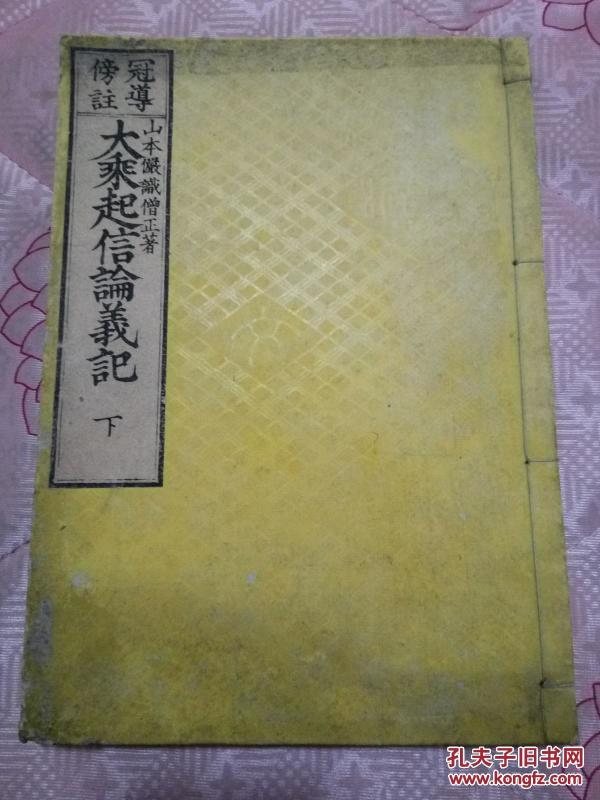 冠導
傍註
山本儼識僧正著
大乘起信論義記
下
孔夫子旧书网
www.kongfz.com